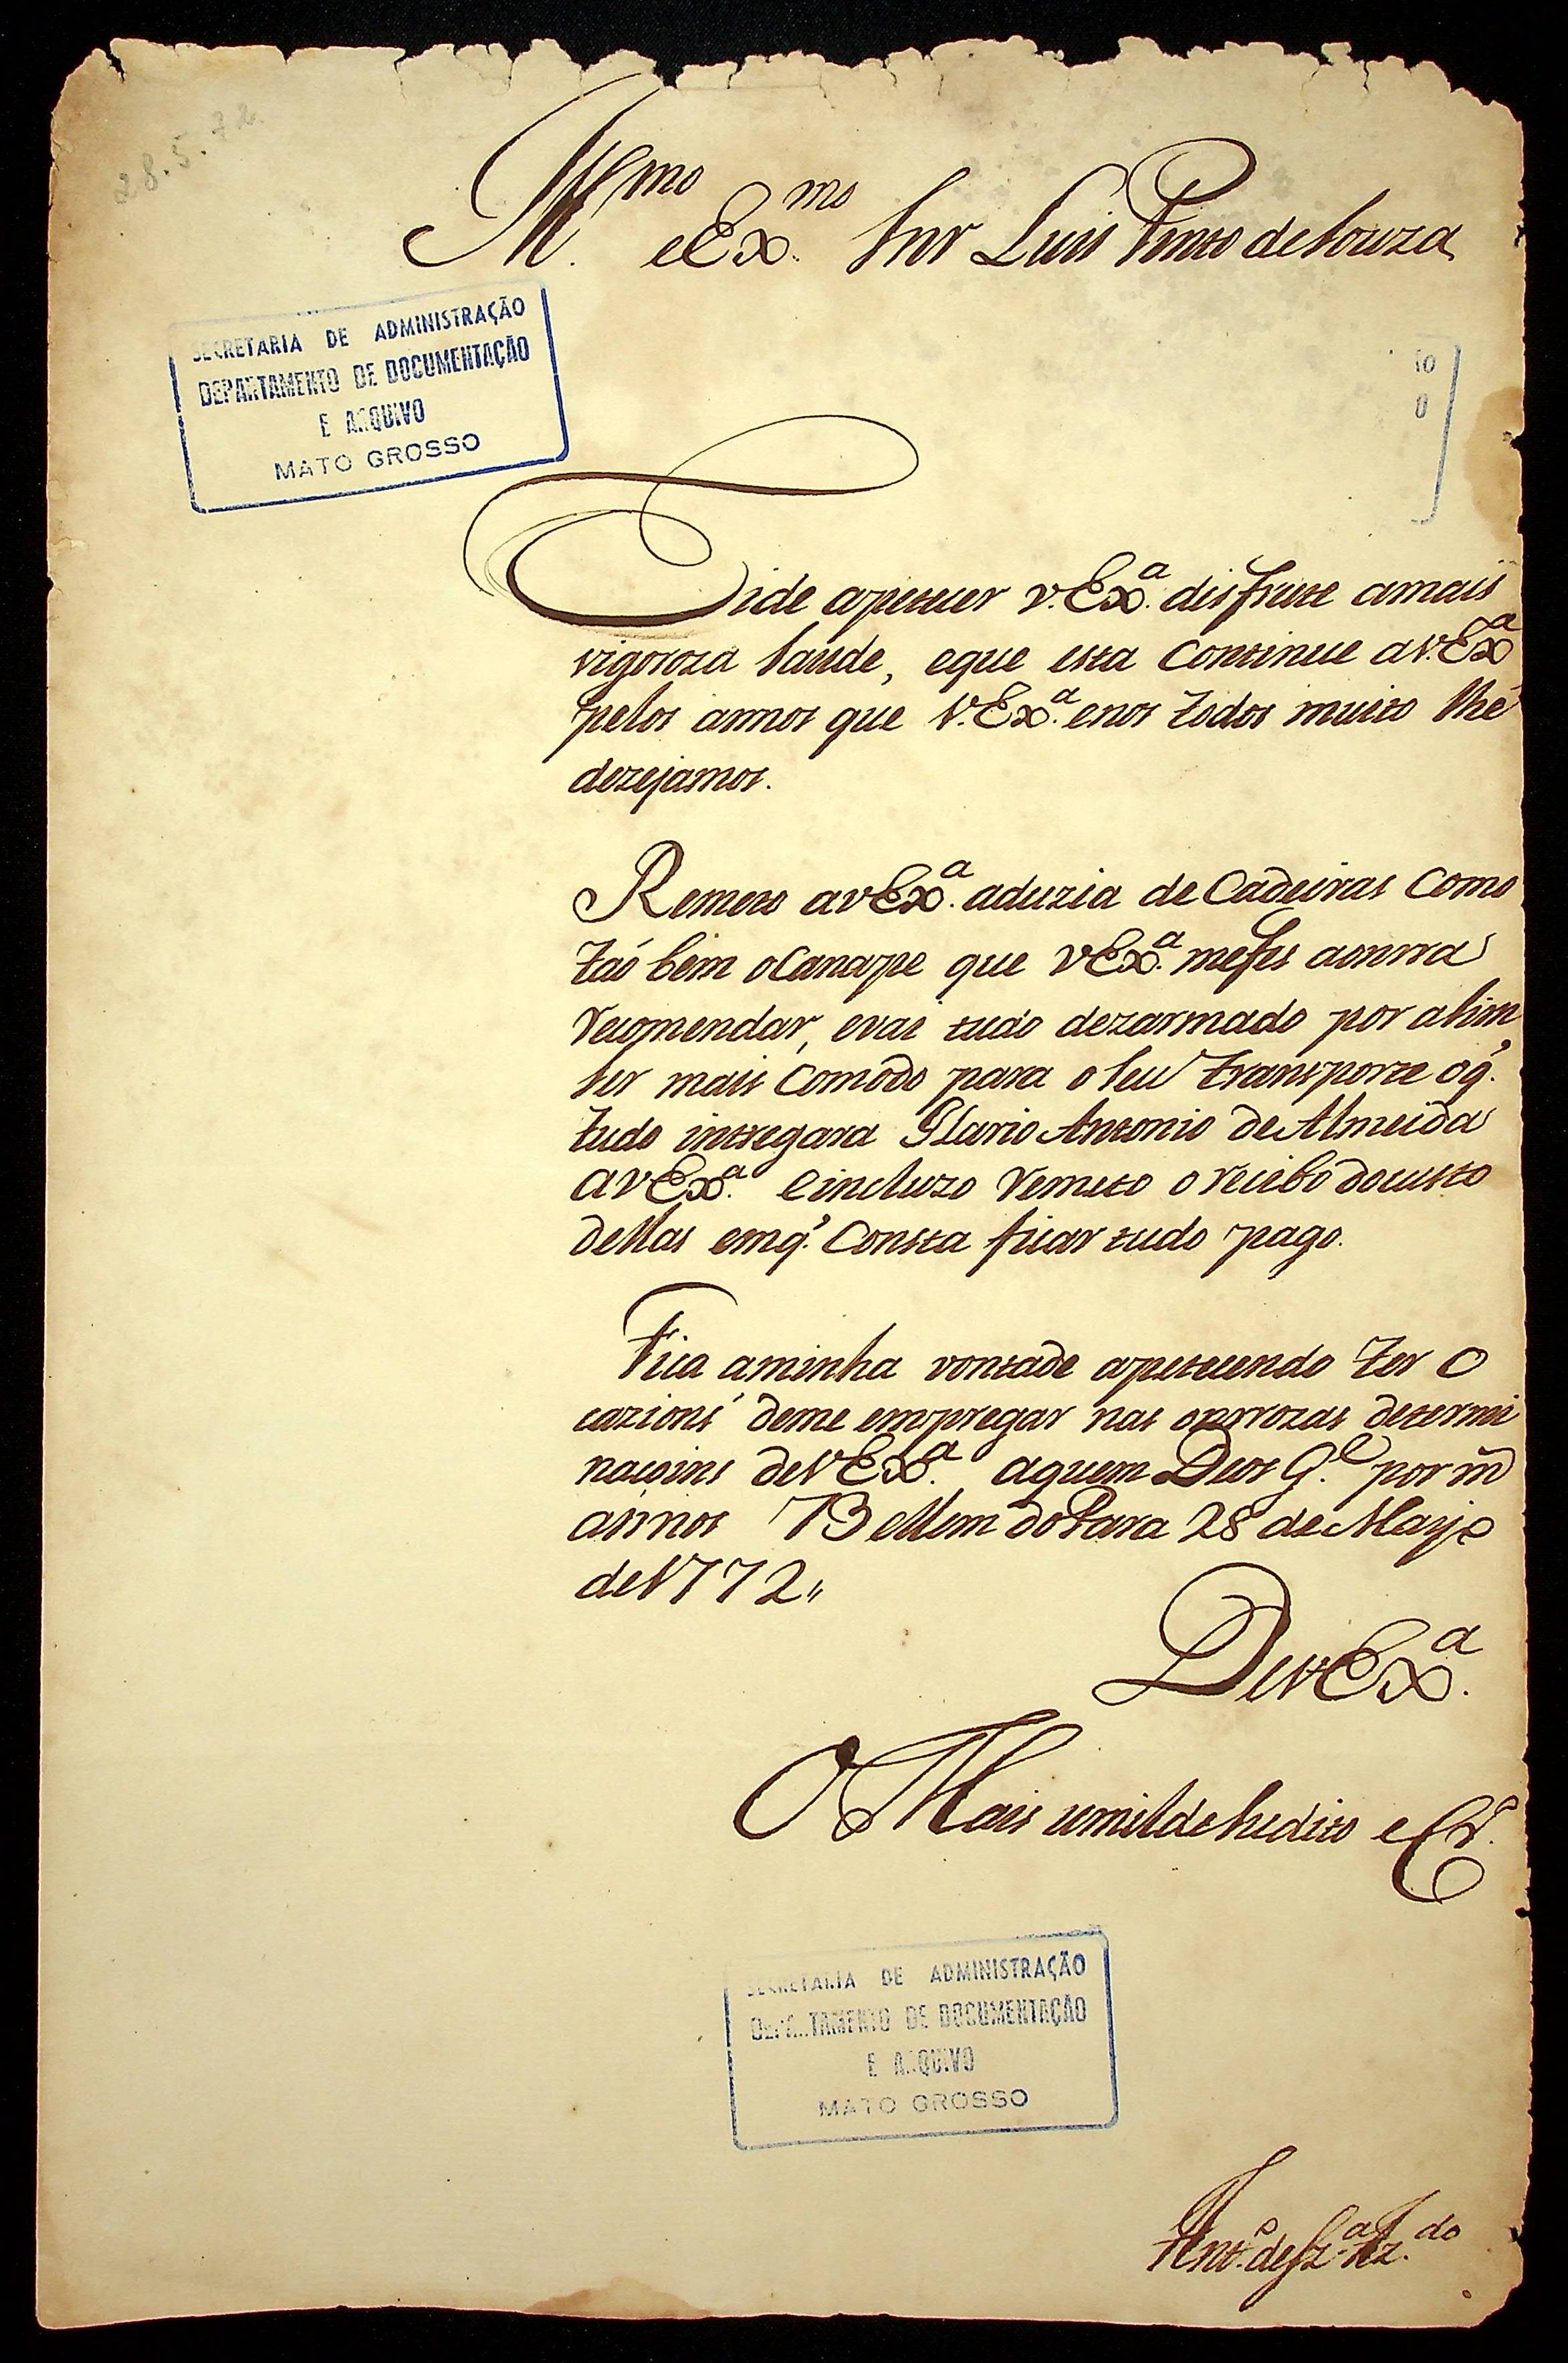 28.5.72
Ill.mo e Ex.mo Snr Luis Pinto de Souza
SECRETARIA DE ADMINISTRAÇÃO
DEPARTAMENTO DE DOCUMENTAÇÃO
E ARQUIVO
MATO GROSSO
ide apeteser v.Ex.a disfrute amais
vigoroza Saude, eque esta Continue av.Ex.a
pelos annos que V.Ex.a enos todos muito lhe
dezejamos.
Remeto avEx.a aduzia de Cadeiras Como
taó bem oCanape que vEx.a mefes aonrra
recomendar, evai tudo dezarmado por asim
ser mais Comodo para o Seu transporte oq.
tudo intregara Ilario Antonio de Almeida
avEx.a eincluzo remeto o recibo docusto
dellas emq. Consta ficar tudo pago.
Fica aminha vontade apetesendo ter O
cazions deme empregar nas onrrozas determi
nasoins deVEx.a aquem Deos G.e por m
annos Bellem do Para 28 de Mayo
de1772,,
DevEx.a
O Mais umilde Sudito e Cr.o
SECRETARIA DE ADMINISTRAÇÃO
DEPARTAMENTO DE DOCUMENTAÇÃO
E ARQUIVO
MATO GROSSO
Ant.o de Sz.a Az.do